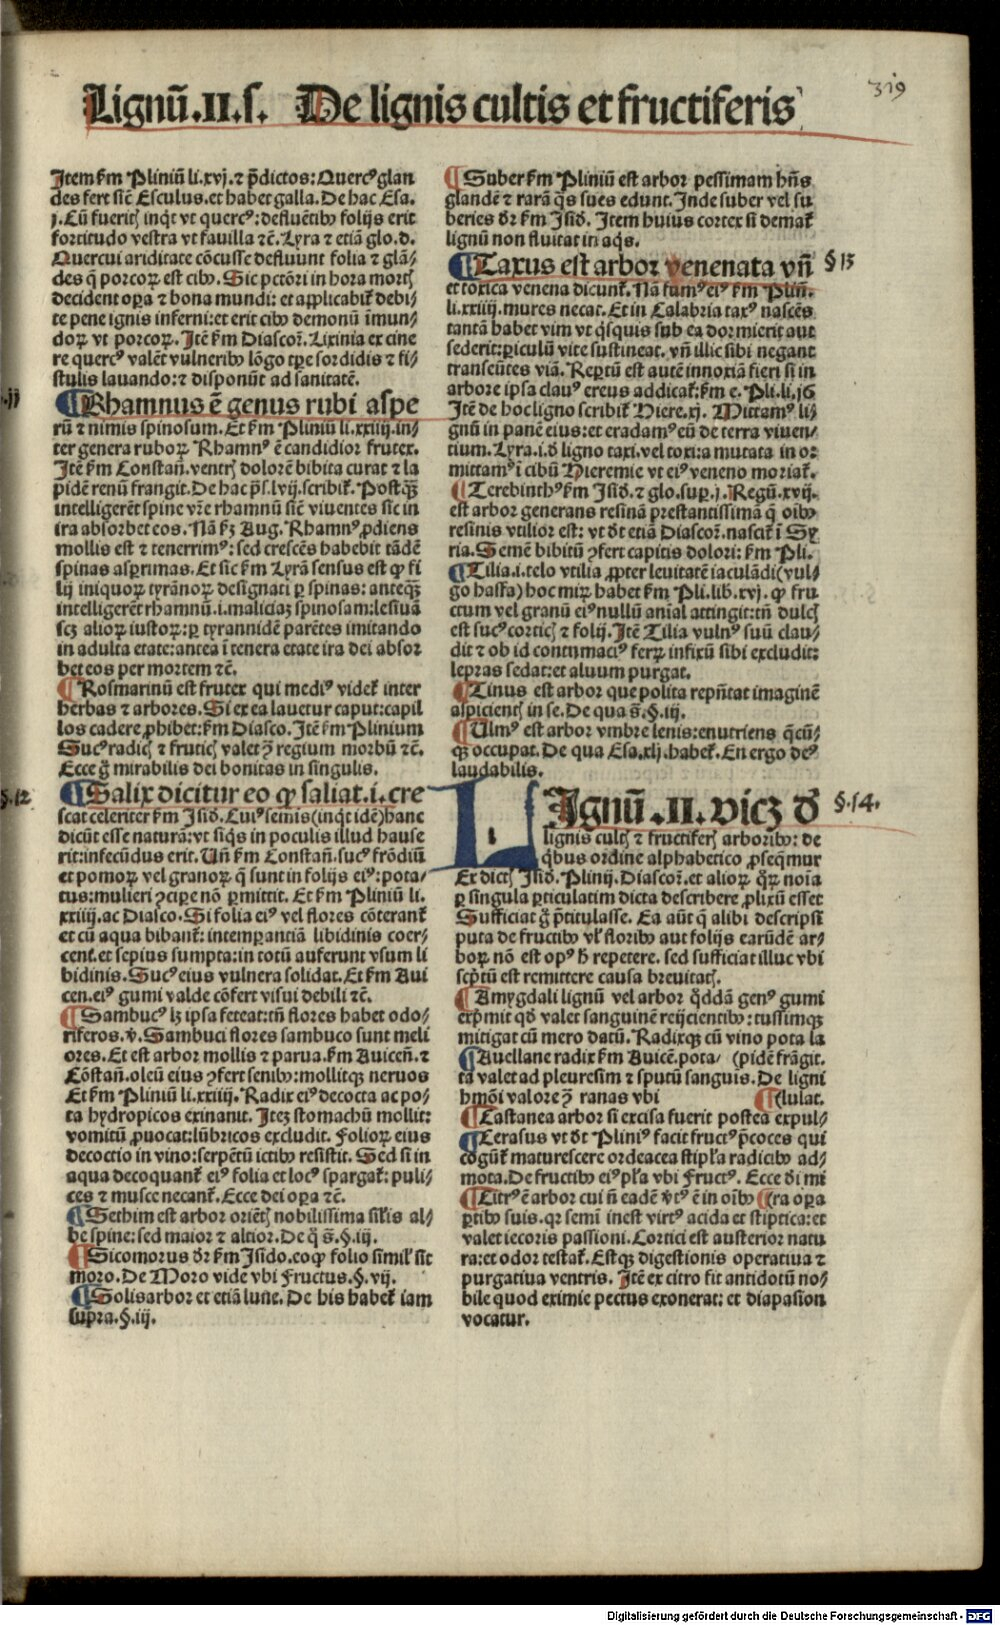 Lignū.II.s. De lignis cultis et fructiferis
319
Item s̄m Pliniū li.xvj. ⁊ p̄dictos: Quercꝰ glan
des fert sic̄ Esculus. et habet galla. De hac Esa.
j. Cū fueritꝭ inq̇t vt quercꝰ: defluētibꝰ folijs erit
fortitudo vestra vt fauilla ⁊c̄. Lyra ⁊ etiā glo. d.
Quercui ariditate cōcusse defluunt folia ⁊ glā⸗
des q̄ porcoꝝ est cibꝰ. Sic pctōri in hora mortꝭ
decident oꝑa ⁊ bona mundi: et applicabit᷑ debi⸗
te pene ignis inferni: et erit cibꝰ demonū īmun⸗
doꝝ vt porcoꝝ. Itē s̄m Diascoꝝ. Lixinia ex cine
re quercꝰ valēt vulneribꝰ lōgo tꝑe sordidis ⁊ fi⸗
stulis lauando: ⁊ disponūt ad sanitatē.
.jj
¶ Rhamnus ē genus rubi aspe
rū ⁊ nimis spinosum. Et s̄m Pliniū li.xxiiij. in⸗
ter genera ruboꝝ Rhamnꝰ ē candidior frutex.
Itē s̄m Constañ. ventrꝭ dolorē bibita curat ⁊ la
pidē renū frangit. De hac ps̄. lvij. scribit᷑. Postꝙ̄
intelligerēt spine vr̄e rhamnū sic̄ viuentes sic in
ira absorbet eos. Nā s̄ꝫ Aug. Rhamnꝰ ꝓdiens
mollis est ⁊ tenerrimꝰ: sed crescēs habebit tādē
spinas asꝑrimas. Et sic s̄m Lyrā sensus est ꝙ fi
lij iniquoꝝ tyrānoꝝ designati ꝑ spinas: anteꝙ̄
intelligerēt rhamnū .i. maliciaꝫ spinosam: lesiuā
scꝫ alioꝝ iustoꝝ: ꝑ tyrannidē parētes imitando
in adulta etate: antea ī tenera etate ira dei absor
bet eos per mortem ⁊c̄.
¶ Rosmarinū est frutex qui mediꝰ videt᷑ inter
herbas ⁊ arbores. Si ex ea lauetur caput: capil
los cadere ꝓhibet: s̄m Diasco. Itē s̄m Plinium
Sucꝰ radicꝭ ⁊ fruticꝭ valet ꝯ̄ regium morbū ⁊c̄.
Ecce ḡ mirabilis dei bonitas in singulis.
§.12
¶ Salix dicitur eo ꝙ saliat .i. cre
scat celeriter s̄m Isid̄. Cuiꝰ semis (inq̇t idē) hanc
dicūt esse naturā: vt siq̇s in poculis illud hause
rit: infecūdus erit. Uñ s̄m Constañ. sucꝰ frōdiū
et pomoꝝ vel granoꝝ q̄ sunt in folijs eiꝰ: pota⸗
tus: mulieri ꝯcipe nō ꝑmittit. Et s̄m Pliniū li.
xxiiij. ac Diasco. Si folia eiꝰ vel flores cōterant᷑
et cū aqua bibant᷑: intemꝑantiā libidinis coer⸗
cent. et sepius sumpta: in totū auferunt vsum li
bidinis. Sucꝰ eius vulnera solidat. Et s̄m Aui
cen. eiꝰ gumi valde cōfert visui debili ⁊c̄.
¶ Sambucꝰ lꝫ ipsa feteat: tñ flores habet odo⸗
riferos. v̄. Sambuci flores sambuco sunt meli
ores. Et est arbor mollis ⁊ parua. s̄m Auiceñ. ⁊
Cōstañ. oleū eius ꝯfert senibꝰ: mollitqꝫ neruos
Et s̄m Pliniū li. xxiiij. Radix eiꝰ decocta ac po⸗
ta hydropicos exinanit. Iteꝫ stomachū mollit:
vomitū ꝓuocat: lūbricos excludit. Folioꝝ eius
decoctio in vino: serpētū ictibꝰ resistit. Sed si in
aqua decoquant᷑ eiꝰ folia et locꝰ spargat᷑: puli⸗
ces ⁊ musce necant᷑. Ecce dei oꝑa ⁊c̄.
¶ Sethim est arbor oriētꝭ nobilissima sil'is al⸗
be spine: sed maior ⁊ altior. De q̄ s̄. §. iij.
¶ Sicomorus dr̄ s̄m Isido. eo ꝙ folio simil' sit
moro. De Moro vide vbi Fructus. §. vij.
¶ Solis arbor et etiā lune. De his habet᷑ iam
supra. §. iij.
¶ Suber s̄m Pliniū est arbor pessimam hñs
glandē ⁊ rarā q̄s sues edunt. Inde suber vel su
beries dr̄ s̄m Isid̄. Item huius cortex si demat᷑
lignū non fluitat in aq̄s.
¶ Taxus est arbor venenata vñ
§ 13
et toxica venena dicunt᷑. Nā fumꝰ eiꝰ s̄m Pliñ.
li. xxiiij. mures necat. Et in Calabria taxꝰ nascēs
tantā habet vim vt q̇squis sub ea dormierit aut
sederit: ꝑiculū vite sustineat. vñ illic sibi negant
transeūtes viā. Reꝑtū est autē innoxiā fieri si in
arbore ipsa clauꝰ ereus addicat᷑: s̄m e. Pli. li. j6
Itē de hoc ligno scribit᷑ Hiere. xj. Mittamꝰ li⸗
gnū in panē eius: et eradamꝰ eū de terra viuen⸗
tium. Lyra .i. d̄ ligno taxi. vel toxi: a mutata in o:
mittamꝰ ī cibū Hieremie vt eiꝰ veneno moriat᷑.
¶ Terebinthꝰ s̄m Isid̄. ⁊ glo. suꝑ. j. Regū. xvij.
est arbor generans resinā prestantissimā q̄ oībꝰ
resinis vtilior est: vt dt̄ etiā Diascoꝝ. nascit᷑ ī Sy
ria. Semē bibitū ꝯfert capitis dolori: s̄m Pli.
¶ Tilia .i. telo vtilia ꝓpter leuitatē iaculādi (vul⸗
go hasta) hoc miꝝ habet s̄m Pli. lib. xvj. ꝙ fru
ctum vel granū eiꝰ nullū aīal attingit: tñ dulcꝭ
est sucꝰ corticꝭ ⁊ folij. Itē Tilia vulnꝰ suū clau⸗
dit ⁊ ob id contumaciꝰ ferꝝ infixū sibi excludit:
lepras sedat: et aluum purgat.
¶ Tinus est arbor que polita repn̄tat imaginē
aspicientꝭ in se. De qua s̄. §. iij.
¶ Ulmꝰ est arbor vmbre lenis: enutriens q̄cū⸗
qꝫ occupat. De qua Esa. xlj. habet᷑. En ergo deꝰ
laudabilis.
LIgnū .II. viꝫ d̄
§.14.
lignis cultꝭ ⁊ fructiferꝭ arboribꝰ: de
q̇bus ordine alphabetico ꝓseq̄mur
Ex dictꝭ Isid̄. Plinij. Diascoꝝ. et alioꝝ q̄ꝝ noīa
ꝑ singula ꝑticulatim dicta describere ꝓlixū esset
Sufficiat ḡ p̄titulasse. Ea aūt q̄ alibi descripsi
puta de fructibꝰ vl' floribꝰ aut folijs earūdē ar⸗
boꝝ nō est opꝰ h̄ repetere. sed sufficiat illuc vbi
scp̄tū est remittere causa breuitatꝭ.
¶ Amygdali lignū vel arbor q̄dā genꝰ gumi
exp̄mit qd̄ valet sanguinē reijcientibꝰ: tussimqꝫ
mitigat cū mero datū. Radixqꝫ cū vino pota la
¶ Auellane radix s̄m Auicē. pota⸗ (pidē frāgit.
ta valet ad pleuresim ⁊ sputū sanguis. De ligni
hmōi valore ꝯ̄ ranas vbi ¶(lulat.
¶ Castanea arbor si excisa fuerit postea expul⸗
¶ Cerasus vt dt̄ Pliniꝰ facit fructꝰ p̄coces qui
cogūt᷑ maturescere ordeacea stipl'a radicibꝰ ad⸗
mota. De fructibꝰ eiꝰ pl'a vbi Fructꝰ. Ecce di mi
¶ Citrꝰ ē arbor cui n̄ eadē v̄tꝰ ē in oībꝰ ¶(ra oꝑa
ꝑtibꝰ suis. qꝛ semī inest virtꝰ acida et stiptica: et
valet iecoris passioni. Cortici est austerior natu
ra: et odor testat᷑. Estqꝫ digestionis operatiua ⁊
purgatiua ventris. Itē ex citro fit antidotū no⸗
bile quod eximie pectus exonerat: et diapasion
vocatur.
Digitalisierung gefördert durch die Deutsche Forschungsgemeinschaft - DFG